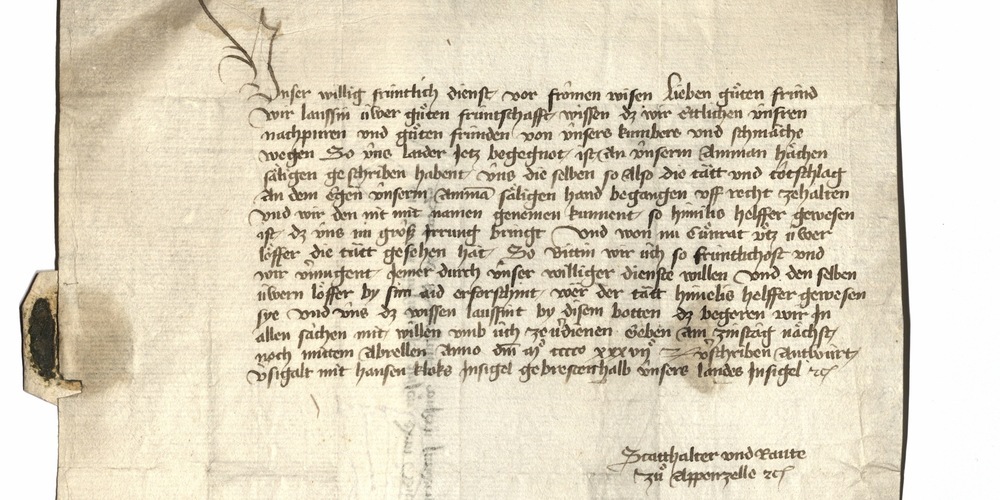 Unser willig früntlich dienst vor fromen wisen lieben gůten fründ
wir laussint üwer gůten früntschafft wissen dz wir ettlichen ünsren
nachpuren und gůten fründen von ünsers kumbers und schmäche
wegen So üns laider jetz begegnot ist an ünserm Amman Hächen
säligen geschriben habent üns die selben so also die tätt und totschlag
an dem egen ünserm Ammā säligen hand begangen uff recht zehalten
und wir den nit mit namen genemen kunnent so himilis helffer gewesen
ist dz uns nu groß jrrung bringt Und won nu Cůnrat ütz üwer
löffer die tätt gesehen hät So bittin wir üch so früntlichost und
wir vermugent jemer durch ünser williger dienste willen Und den selben
üwern löffer by sim aid erforschint wer der tätt himelis helffer gewesen
sye Und üns dz wissen laussint by disem botten dz begeren wir jn
allen sachen mit willen umb üch ze verdienen Geben am zinstag nächst
noch mittem Abrellen Anno dm̄ mo cccco xxxvijo üwer verschriben antwurt
Vsigalt mit hansen kloks Insigel gebrestenhalb ünsers landes Insigel etc
Statthalter und Raute
zů Appenzelle etc